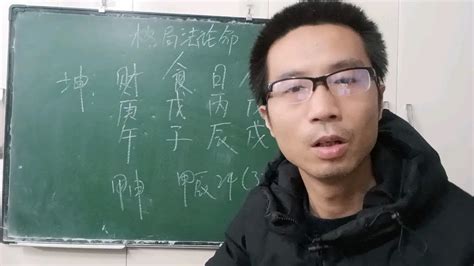 格局法论命
坤: 财 食 日
庚 戊 丙
午 子 辰 戌
甲申 甲辰24(3